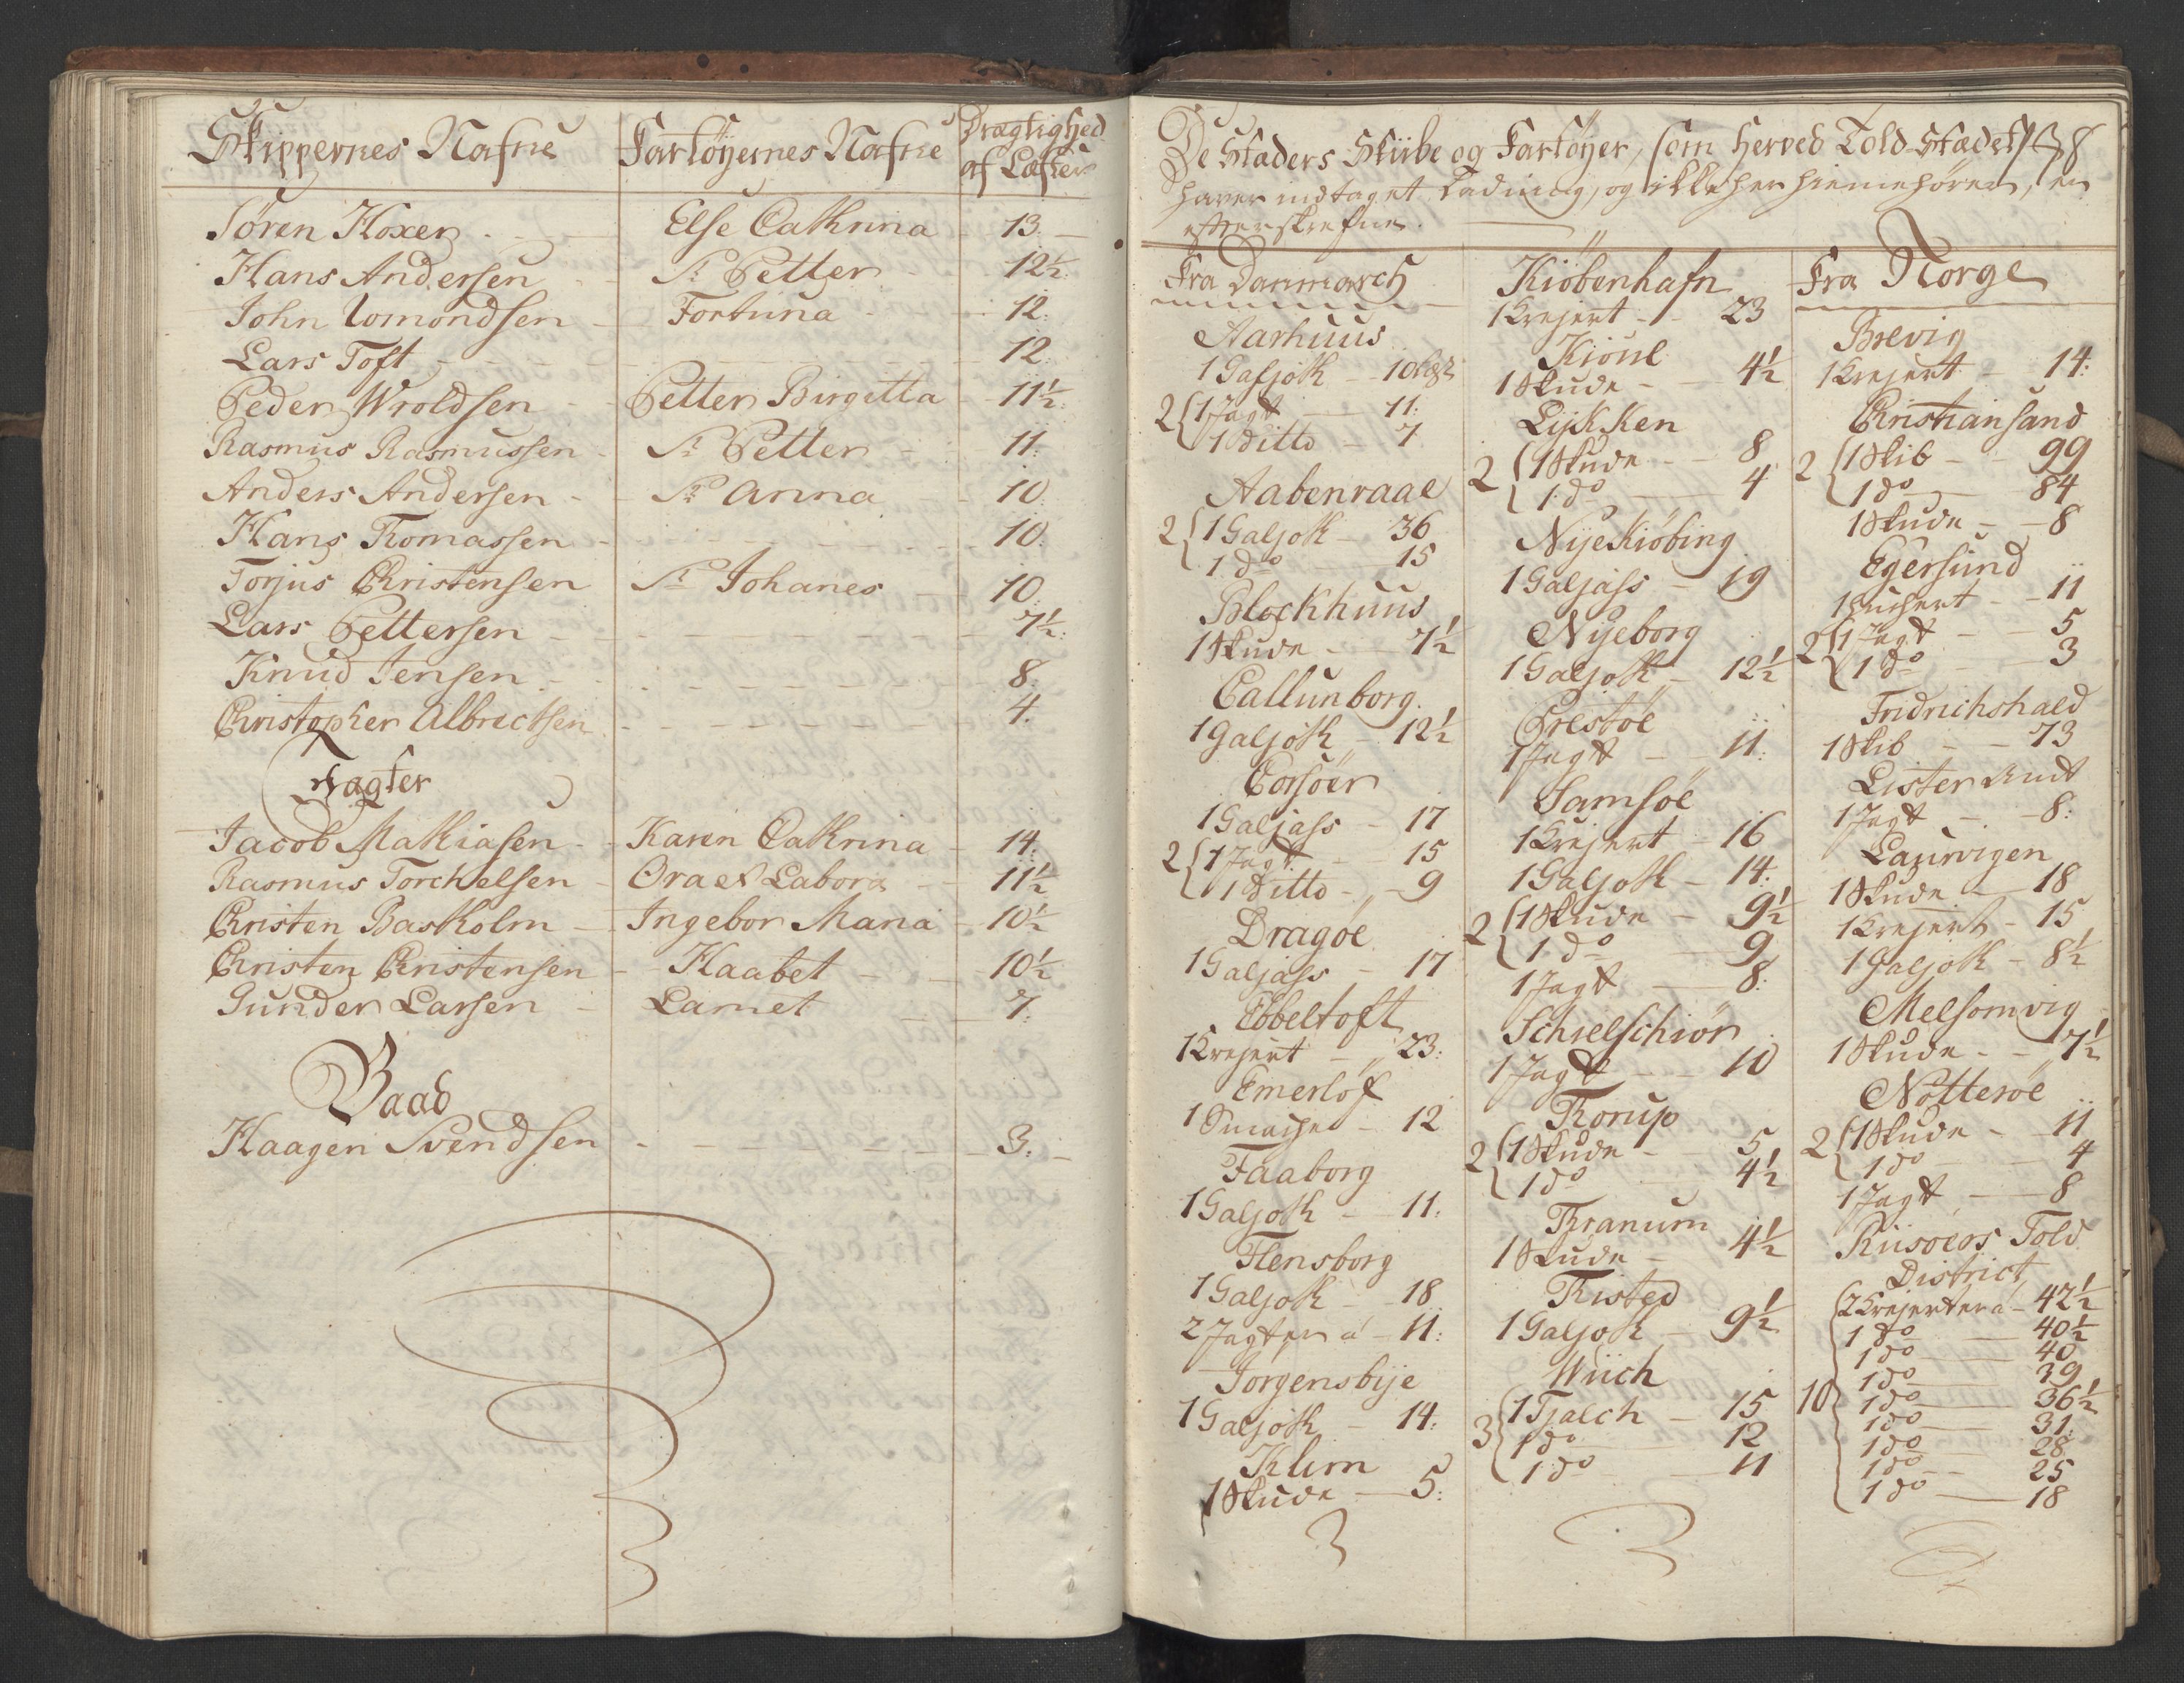 Skippernes Nafne | Fartøyernes Nafne | Drægtighed af Læster
Søren Hoxer | Else Cathrina | 13
Hans Andersen | St Petter | 12½
John Lomondsen | Fortuna | 12
Lars Toft | 12
Peder Wroldsen | Petter Birgitta | 11½
Rasmus Rasmussen | St Petter | 11
Anders Andersen | St Anna | 10
Hans Thomassen | 10
Torjus Christensen | St Johanes | 10
Lars Pettersen | 7½
Knud Jensen | 8
Christopher Albrectsen | 4
Jagter
Jacob Mathiasen | Karen Cathrina | 14
Rasmus Torchelsen | Ora et Labora | 11½
Christen Basholm | Ingebor Maria | 10½
Christen Christensen | Haabet | 10½
Gunder Larsen | Larnet | 7
Baad
Haagen Svendsen | 3
De Stæders Skibe og Fartøyer, som herved Told-Stædet
haver indtaget Ladning, og ikke her hiemehører, en
efterskrefne.
Fra Danmarch
Aarhuus
1 Galjoth 10 Læst
2 { 1 Jagt 11
1 Ditto 7
Aabenraae
2 { 1 Galjoth 36
1 do 15
Blockhuus
1 Skude 7½
Callunborg
1 Galjoth 12½
Corsøer
1 Galjass 17
2 { 1 Jagt 15
1 Ditto 9
Dragøe
1 Galjass 17
Ebbeltoft
1 Krejert 23
Emerlof
1 Smache 12
Faaborg
1 Galjoth 11
Flensborg
1 Galjoth 18
2 Jagter a 11
Jorgensbije
1 Galjoth 14
Klim
1 Skude 5
Kiøbenhafn
1 Krejert 23
Kiöne
1 Skude 4½
Lykken
2 { 1 Skude 8
1 do 4
Nyekiøbing
1 Galjass 19
Nyeborg
1 Galjoth 12½
Prestøe
1 Jagt 11
Samsøe
1 Krejert 16
1 Galjoth 14
2 { 1 Skude 9½
1 do 9
1 Jagt 8
Schielschiør
1 Jagt 10
Thorup
2 { 1 Skude 5
1 do 4½
Thranum
1 Skude 4½
Thisted
1 Galjoth 9½
Wiich
3 { 1 Tjalch 15
1 do 12
1 do 11
Fra Norge
Brevig
1 Krejert 14
Christiansand
2 { 1 Skib 99
1 do 84
1 Skude 8
Egersund
1 Huchert 11
2 { 1 Jagt 5
1 do 3
Fridrichshald
1 Skib 73
Lister Amt
1 Jagt 8
Laurvigen
1 Skude 18
1 Krejert 15
1 Galjoth 8½
Melsomvig
1 Skude 7½
Nøtterøe
2 { 1 Skude 11
1 do 4
1 Jagt 8
Riisøers Told
District
10 { 2 Krejerter a 42½
1 do 40½
1 do 40
1 do 39
1 do 36½
1 do 31
1 do 28
1 do 25
1 do 18